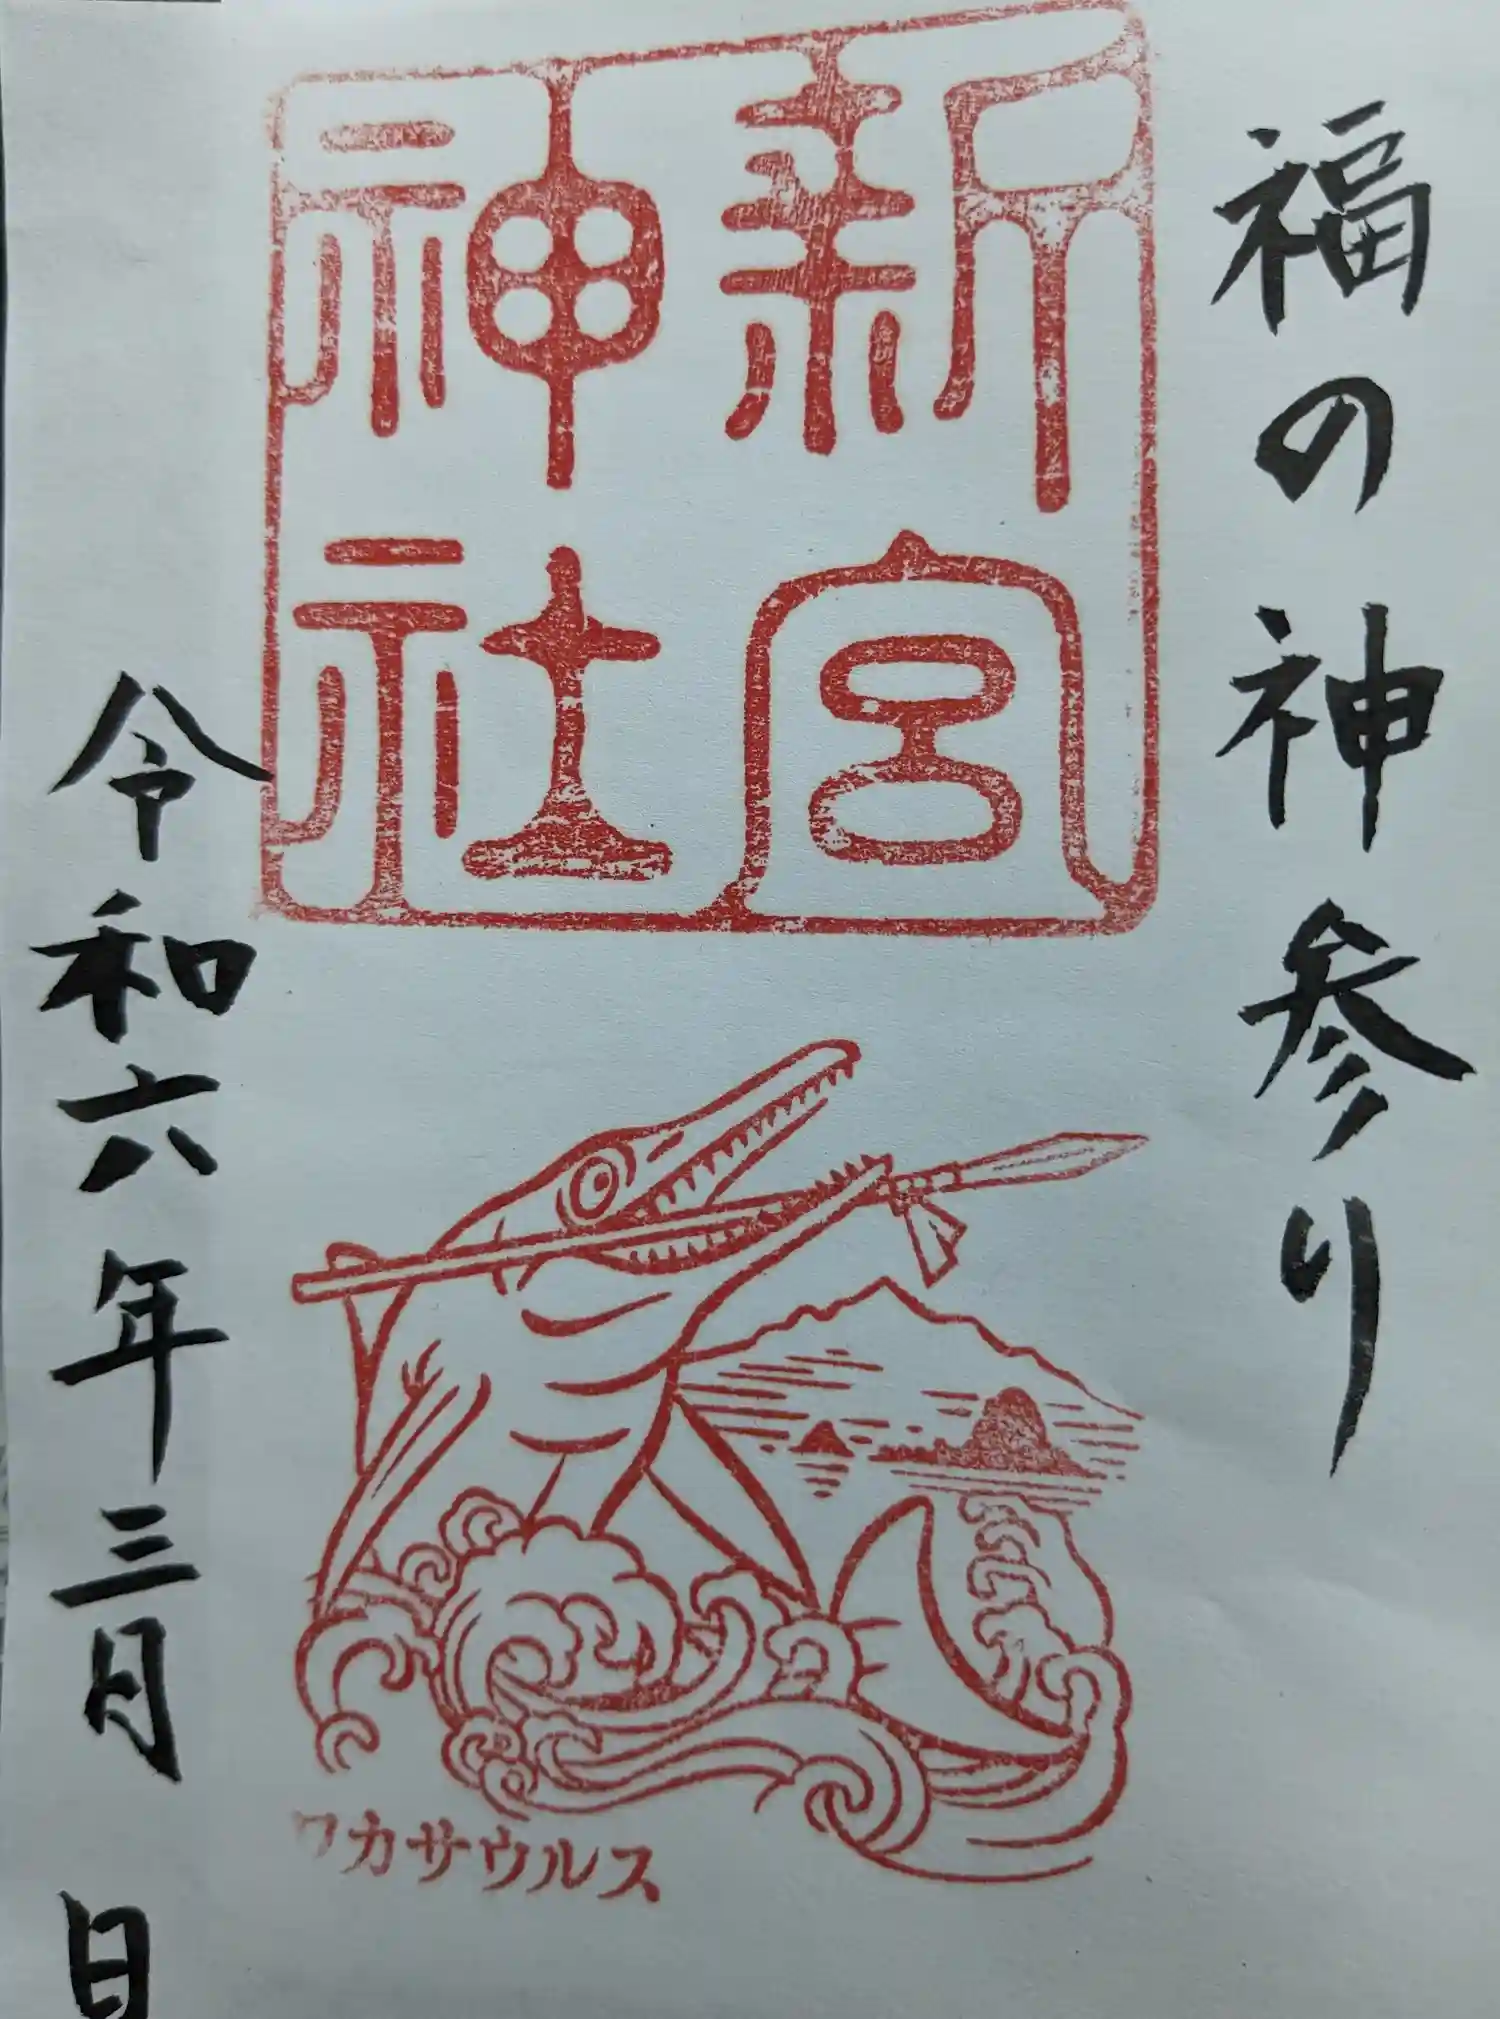 福の神参り
新宮
神社
ワカサウルス
令和六年三月 日